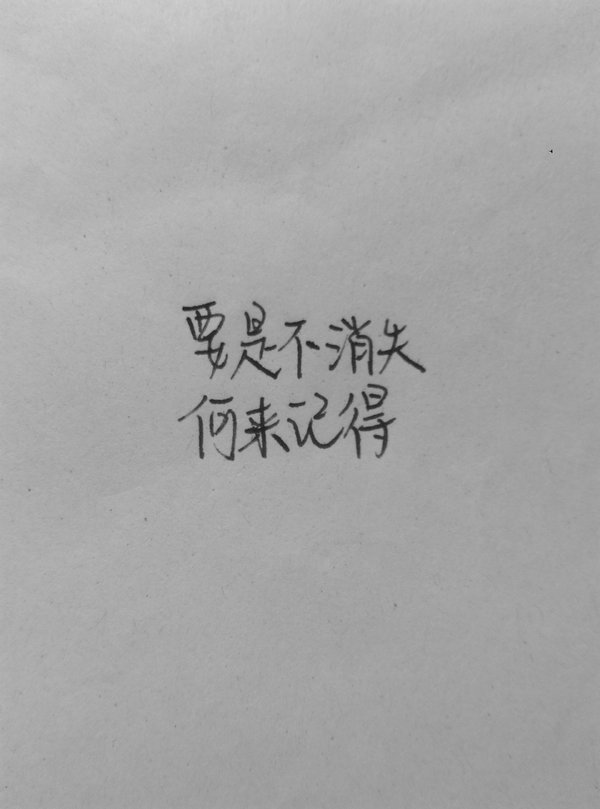 要是不消失
何来记得